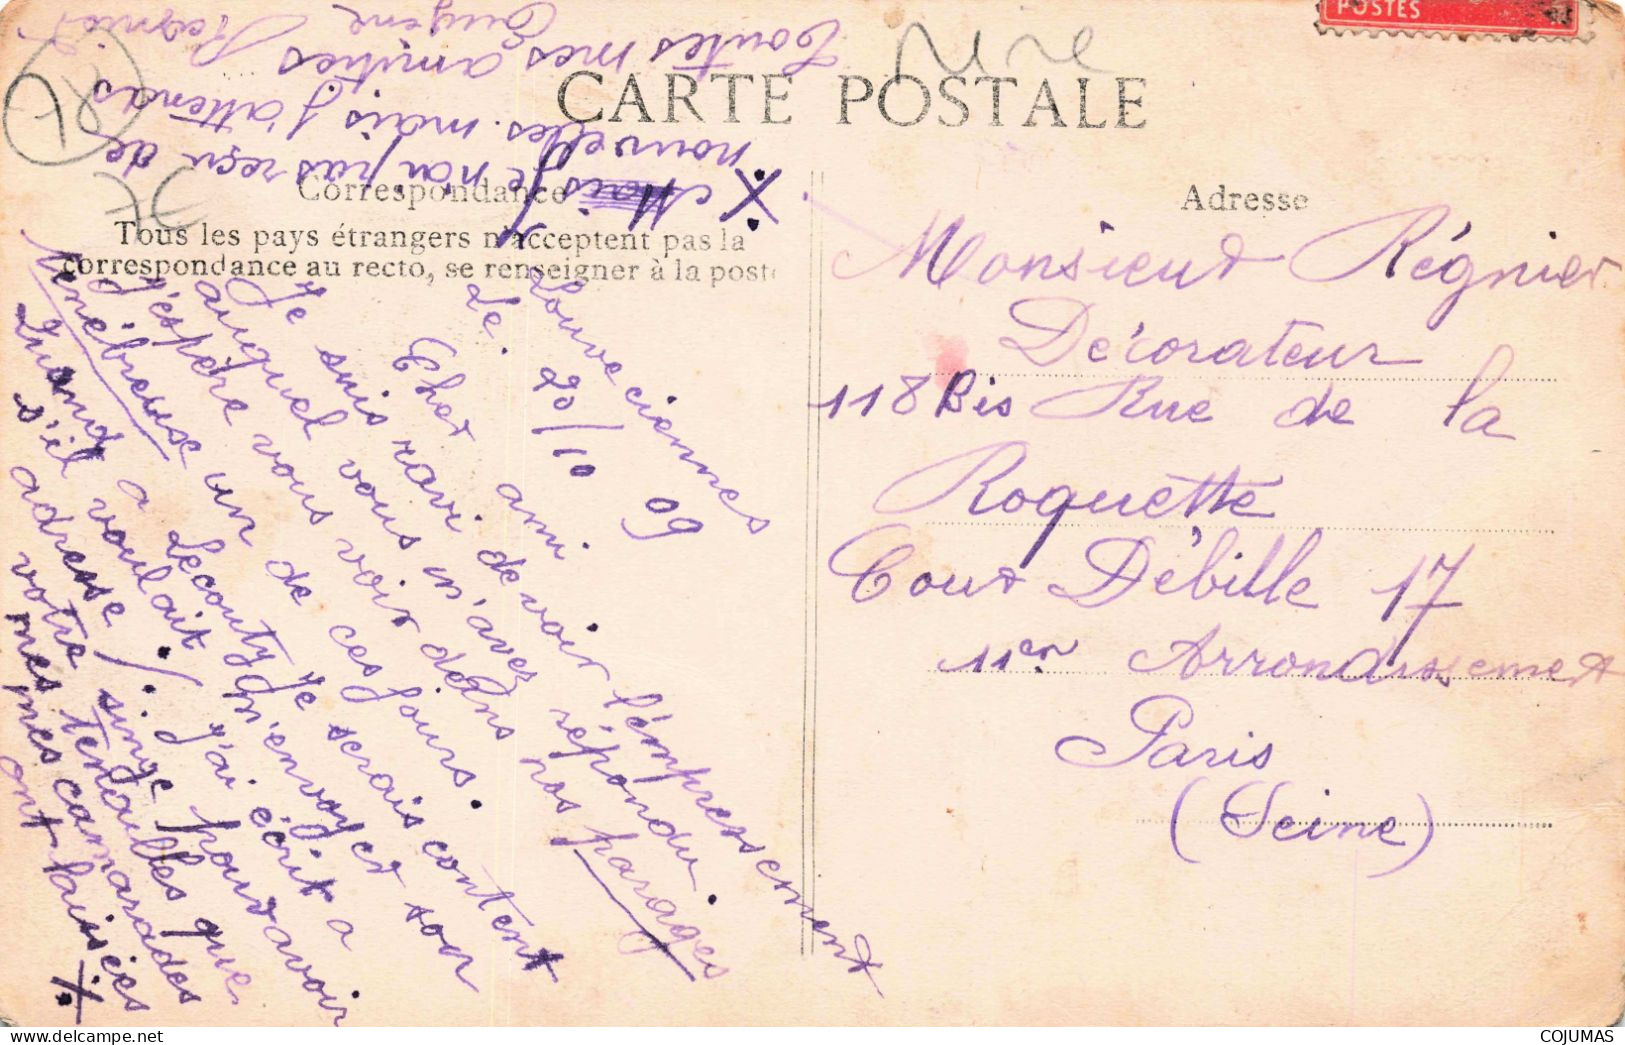 POSTES
rire
CARTE POSTALE
Correspondance
Adresse
Tous les pays étrangers n'acceptent pas la
correspondance au recto, se renseigner à la poste
Monsieur Régnier
Décorateur
118 Bis Rue de la
Roquette
Cour Débille 17
11er Arrondissement
Paris
(Seine)
Louveciennes
Le. 20/10 09
Cher ami
Je suis ravi de voir l'empressement
auquel vous m'avez répondu
j'espère vous voir dans nos parages
Ténébreuse un de ces jours.
Quand a Lecouty je serais content
s'il voulait m'envoyer son
adresse /. j'ai écrit a
votre singe pour avoir
mes tenailles que
mes camarades
ont laissées
X
X Mais Je n'ai pas reçu de
nouvelles. mais j'attends
Toutes mes amities
Eugène Regnier
COJUMAS